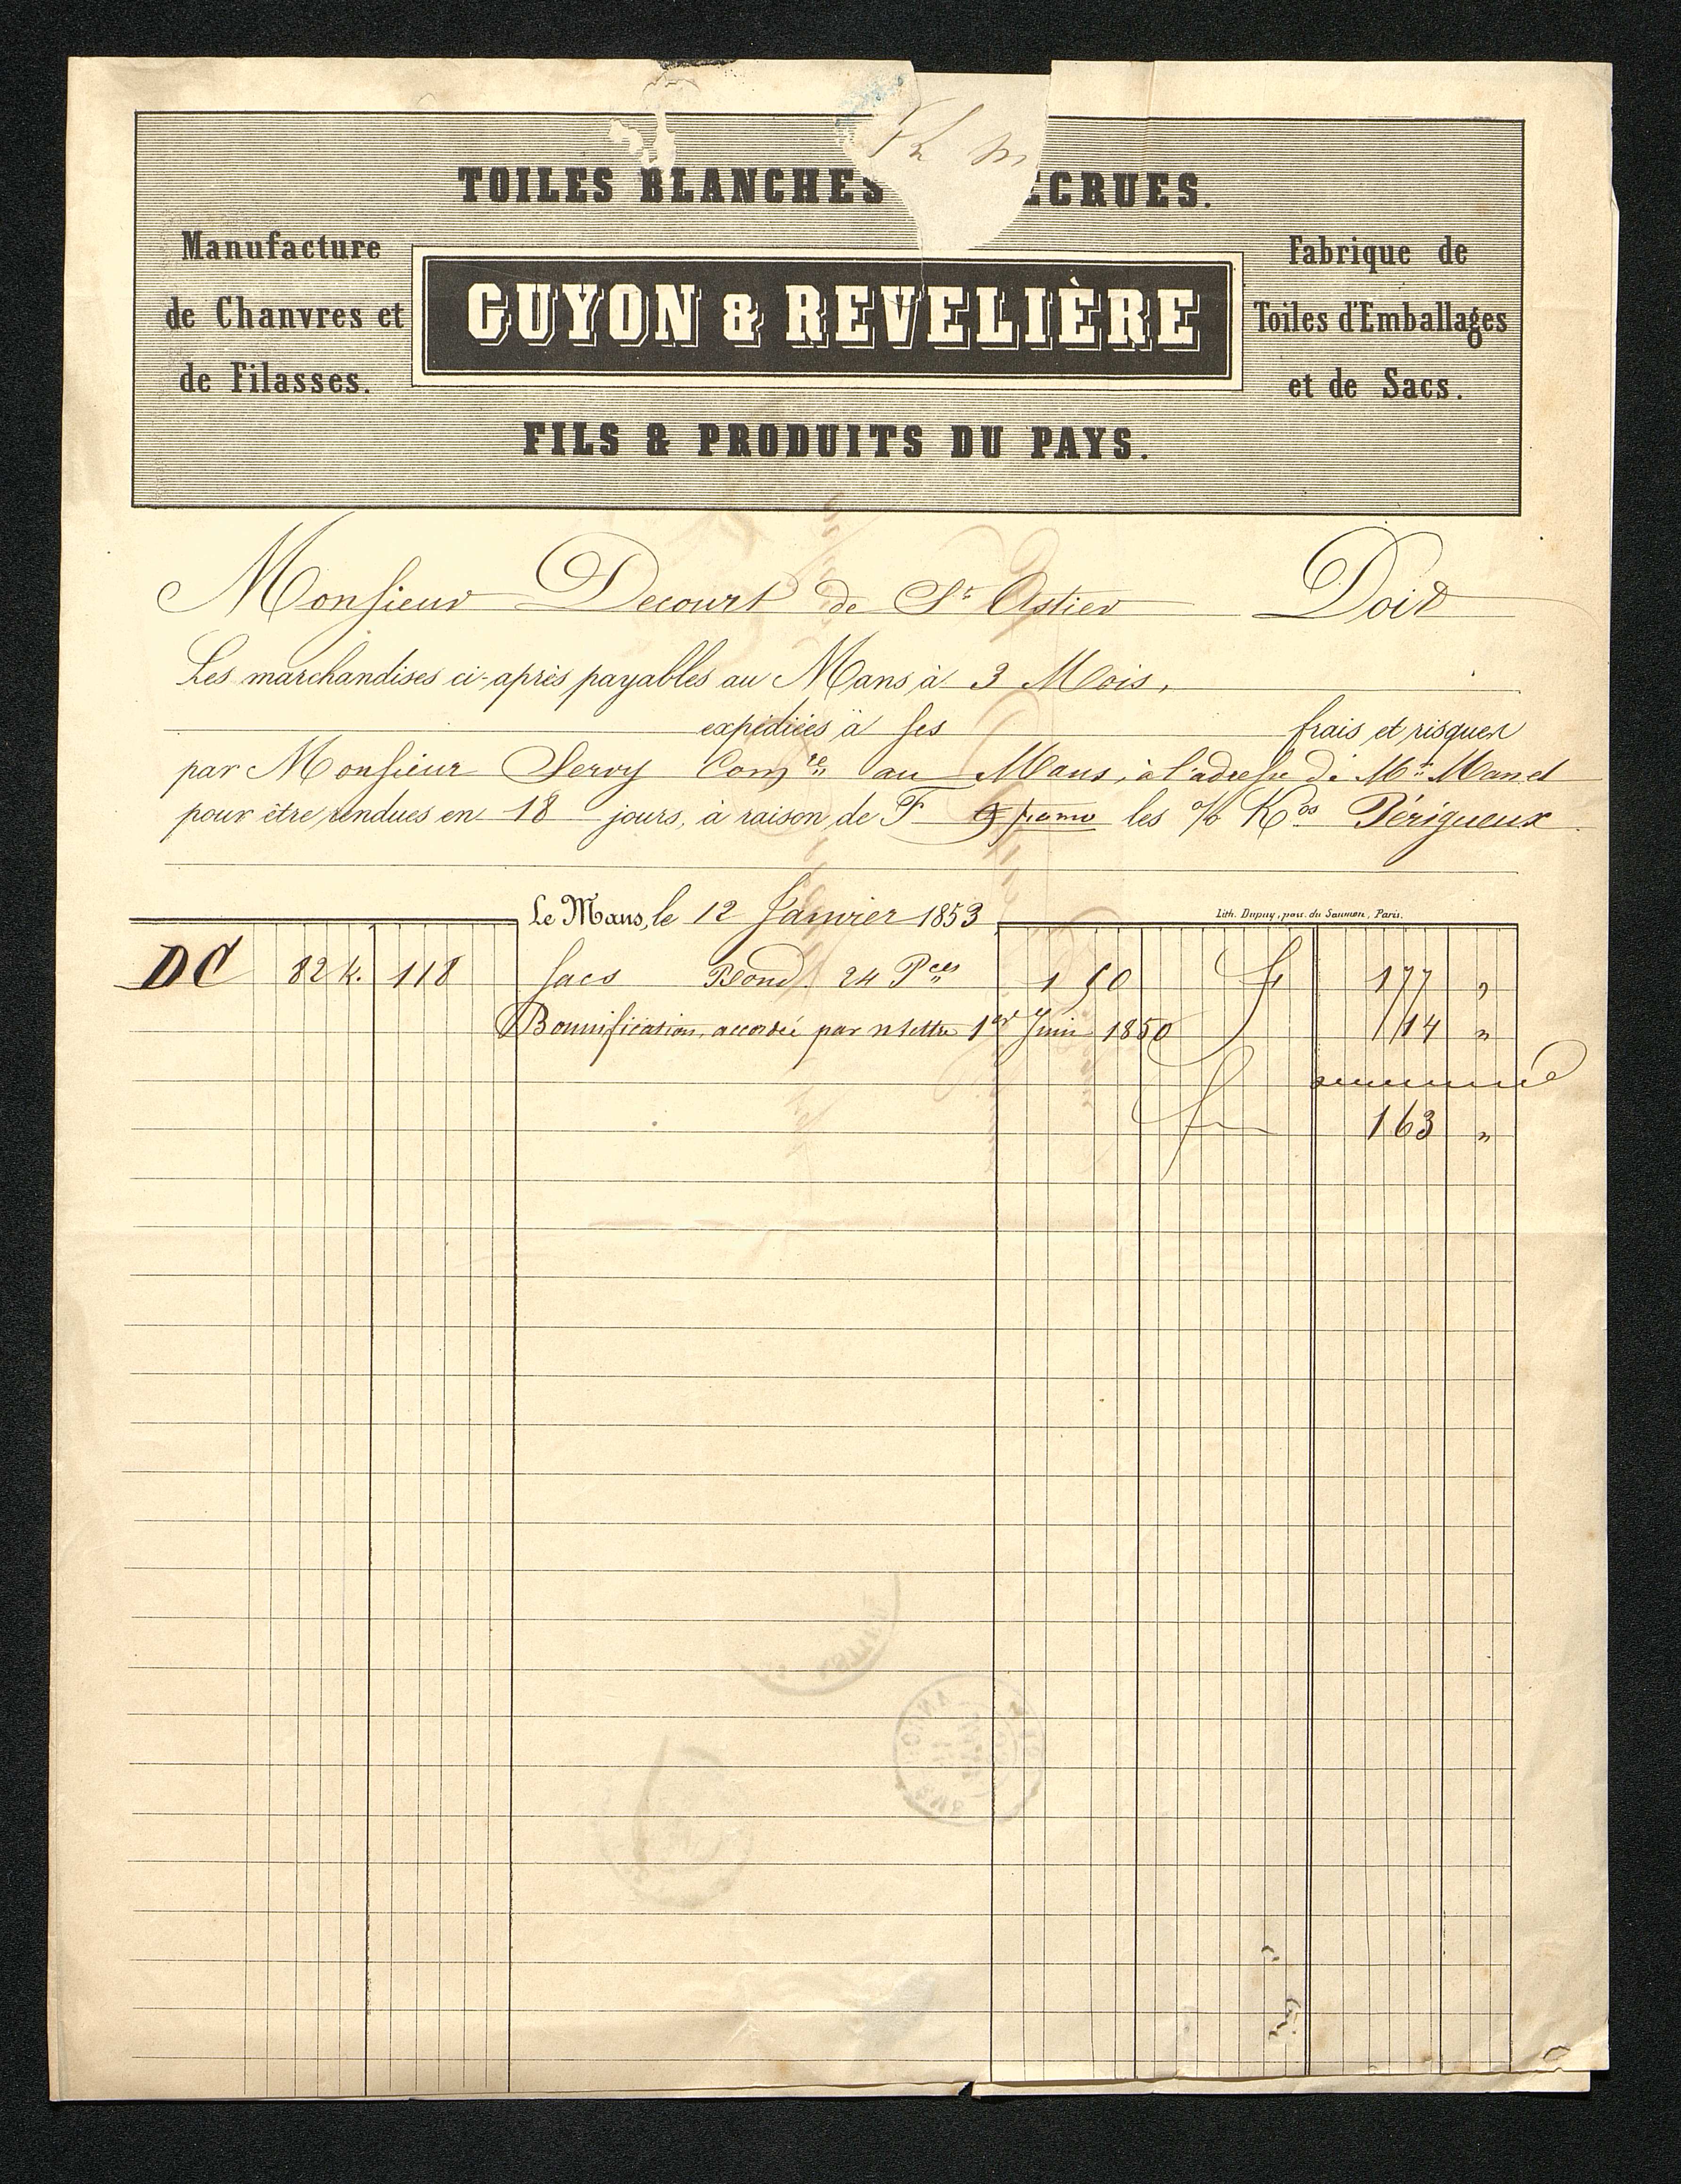 Ph m
TOILES BLANCHES ECRUES.
Manufacture
de Chanvres et
de Filasses.
GUYON & REVELIÈRE
Fabrique de
Toiles d'Emballages
et de Sacs.
FILS & PRODUITS DU PAYS.
Monsieur Decourt de St Astier Doit
Les marchandises ci-après payables au Mans à 3 Mois,
expédiées à ses frais et risques
par Monsieur Servy Comre au Mans, à l'adresse de Mr Manet
pour être rendues en 18 jours, à raison de F les % Kos Périgueux
Le Mans, le 12 Janvier 1853
Lith. Dupuy, pass. du Saumon, Paris.
DC 82 k. 118 Sacs Blond. 24 Pces 1 50 f 177 "
Bonnification accordée par n lettre 1er Juin 1850 14 "
f 163 "